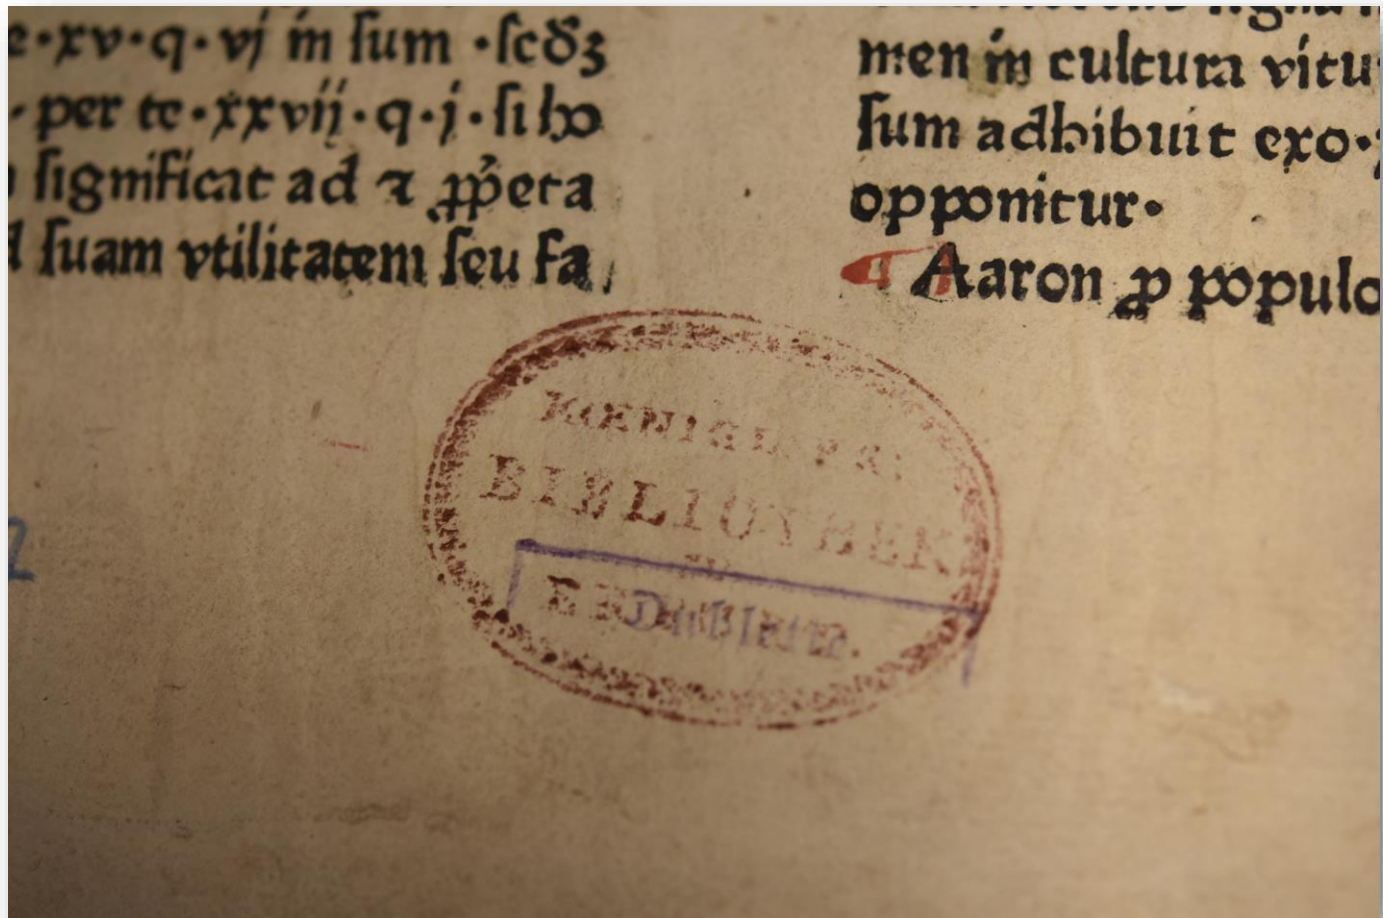 e·xv·q·vj in sum ·scdʒ
per te·xxvij·q·j·si
significat ad ⁊
suam vtilitatem seu fa
men in cultura vitu
sum adhibuit exo·
opponitur·
Aaron ꝓ populo
KŒNIGL. PR:
BIBLIOTHEK
2